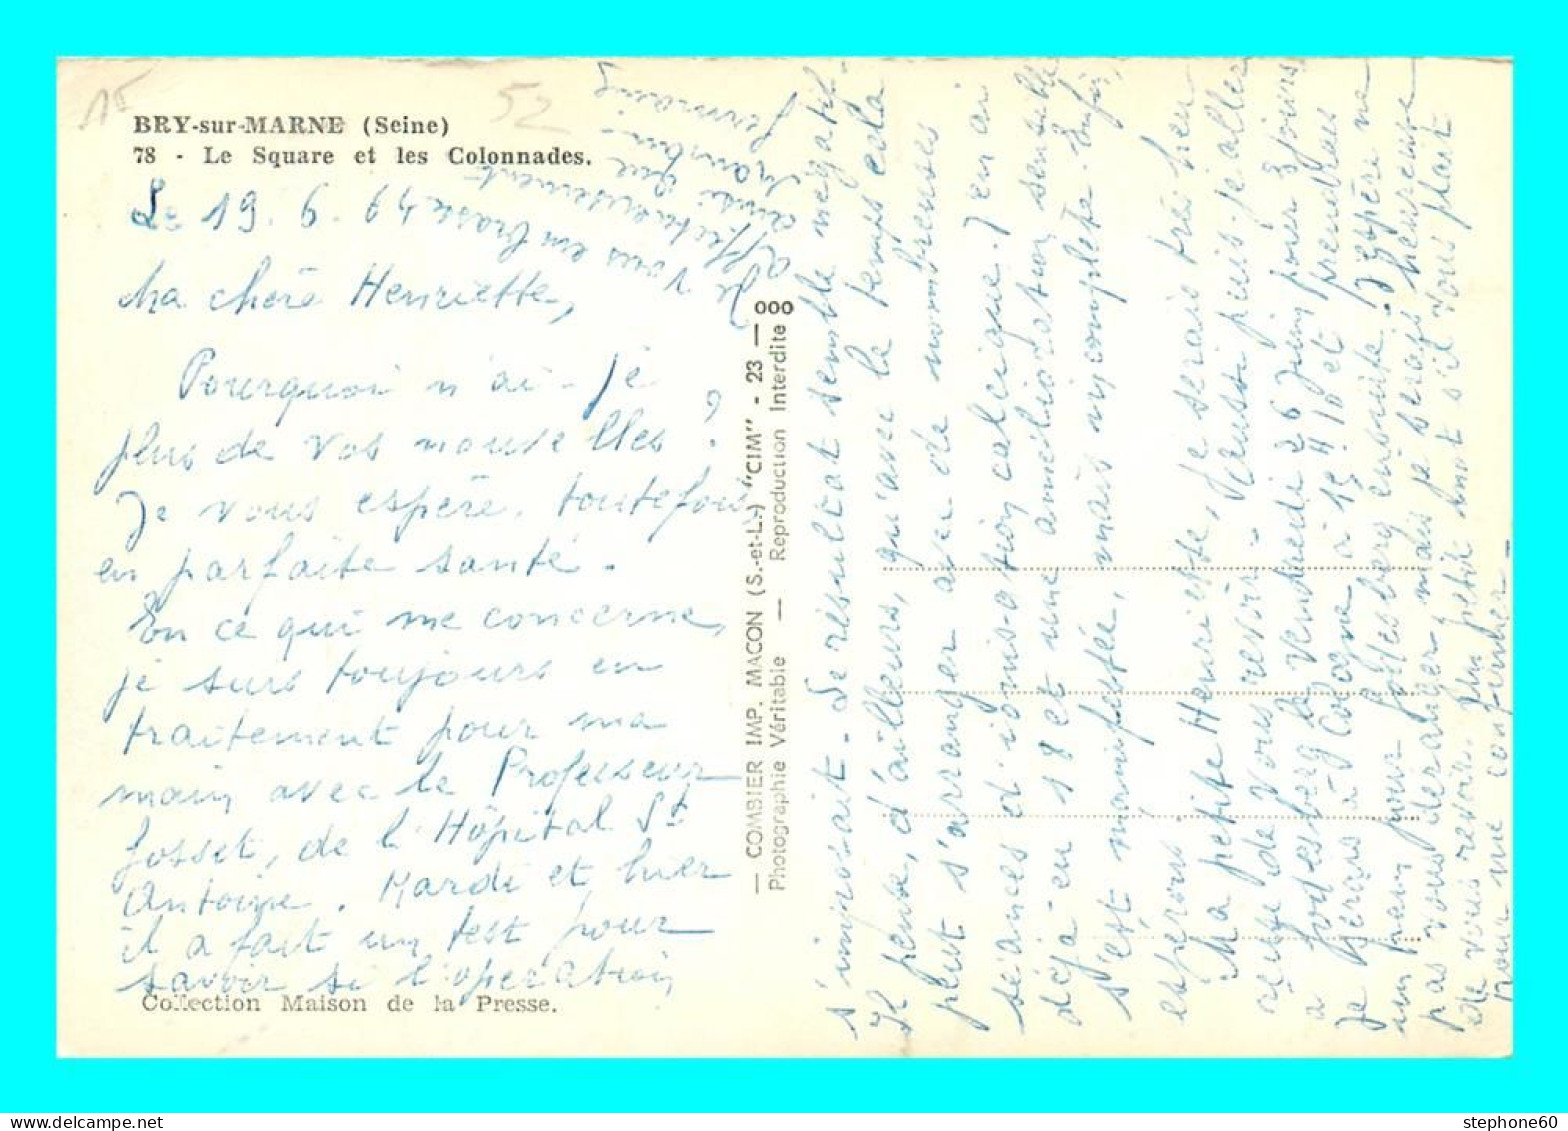 15
52
BRY-sur-MARNE (Seine)
78 - Le Square et les Colonnades.
Le 19.6.64
Ma chère Henriette,
Pourquoi n'ai-je
plus de vos nouvelles ?
Je vous espère, toutefois
en parfaite santé.
En ce qui me concerne,
je suis toujours en
traitement pour ma
main avec le Professeur
Gosset, de l'Hôpital St
Antoine. Mardi et hier
il a fait un test pour
savoir si l'opération
Collection Maison de la Presse.
— COMBIER IMP. MACON (S.-et-L.) "CIM" - 23 — 000
Photographie Véritable — Reproduction Interdite
s'imposait. Le résultat semble négatif.
Il pense, d'ailleurs, qu'avec le temps cela
peut s'arranger avec de nombreuses
séances d'ionisation calcique. J'en ai
déjà en 18 et une amélioration sensible
s'est manifestée, mais incomplète. Enfin,
espérons !
Ma petite Henriette, je serais très heu
reuse de vous revoir. Aussi puis-je aller
à Godesberg le vendredi 26 Juin pour 3 jours
Je serais à Cologne à 15 H 10 et prendrai
un train pour Godesberg ensuite. J'espère ne
pas vous déranger, mais je serais heureuse
de vous revoir. Un petit mot s'il vous plaît
pour me confirmer -
Je vous embrasse
affectueusement
ainsi que
maman.
Germaine
stephone60